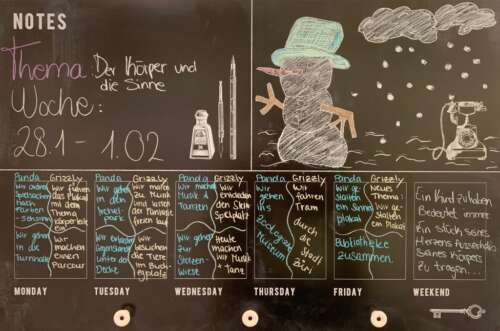 NOTES
Thema: Der Körper und
die Sinne
Woche:
28.1 - 1.02
Panda
Wir ordnen
Spielsachen
nach
Farben
Wir gehen
in die
Turnhalle
Grizzly
Wir führen
das
Plakat
mit dem
Thema
Körper
ein
Wir
machen
einen
Parcour
Panda
Wir gehen
in den
Wir
Gegenstände
unter der
Decke
Grizzly
Wir malen
zur Musik
und lassen
der Fantasie
freien
lauf
Wir
die Tiere
im Buch
Panda
Wir machen
Musik &
Tanzen
Wir gehen
zur
Stelzen-
Wiese
Grizzly
Wir
entdecken
den
Spielplatz
Heute
machen
wir Musik
+ Tanz
Panda
Wir
gehen
ins
Zoologische
Museum
Grizzly
Wir
fahren
Tram
durch
die Stadt
Züri
Panda
Wir ge-
stalten
ein Sinnes
plakat
Bibliotheke
zusammen.
Grizzly
Neues
Thema!
Wir ge-
stalten
ein Plakat
Ein Kind zu haben
Bedeutet immer
Ein stück seines
Herzens Ausserhalb
Seines Körpers
zu tragen...
MONDAY
TUESDAY
WEDNESDAY
THURSDAY
FRIDAY
WEEKEND